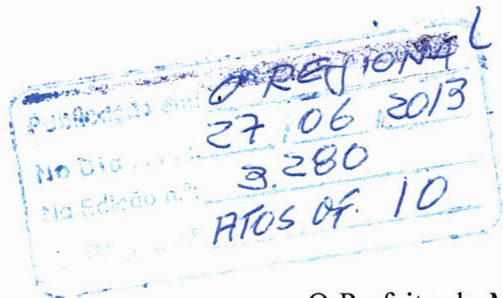 Publicação em: O REGIONAL
No Dia 27 06 2013
Na Edição nº: 3.280
ATOS OF. 10
O Prefeito do M